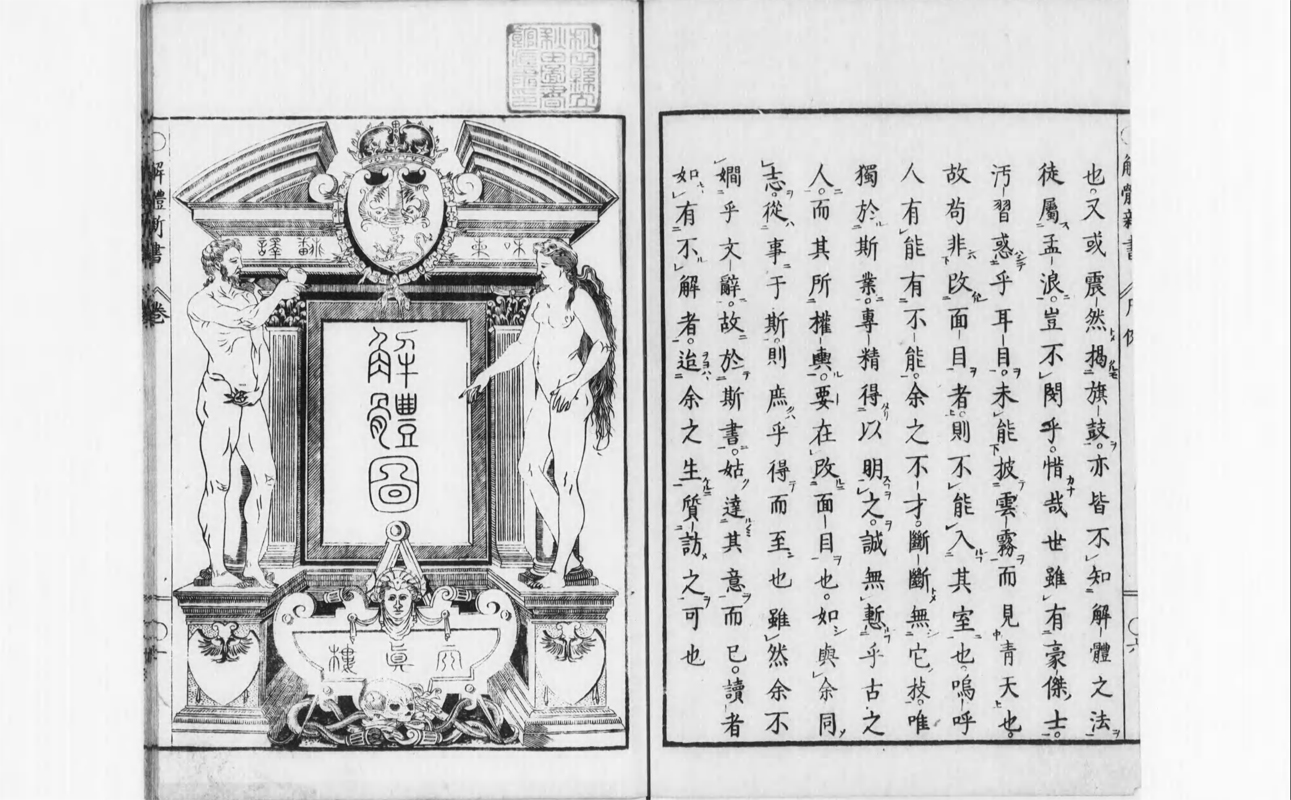 解體新書 凡例
也。又或震然揭旗鼓。亦皆不知解體之法
徒屬孟浪。豈不閔乎。惜哉世雖有豪傑士。
汚習惑乎耳目。未能披雲霧而見青天也。
故苟非改面目者。則不能入其室也。嗚呼
人有能有不能。余之不才。斷斷無它技。唯
獨於斯業。專精得以明之。誠無慙乎古之
人。而其所權輿。要在改面目也。如與余同
志。從事于斯。則庶乎得而至也雖然余不
嫺乎文辭。故於斯書。姑達其意而已。讀者
如有不解者。迨余之生質訪之可也
東 翻譯
解體圖
天眞樓
解體新書 卷